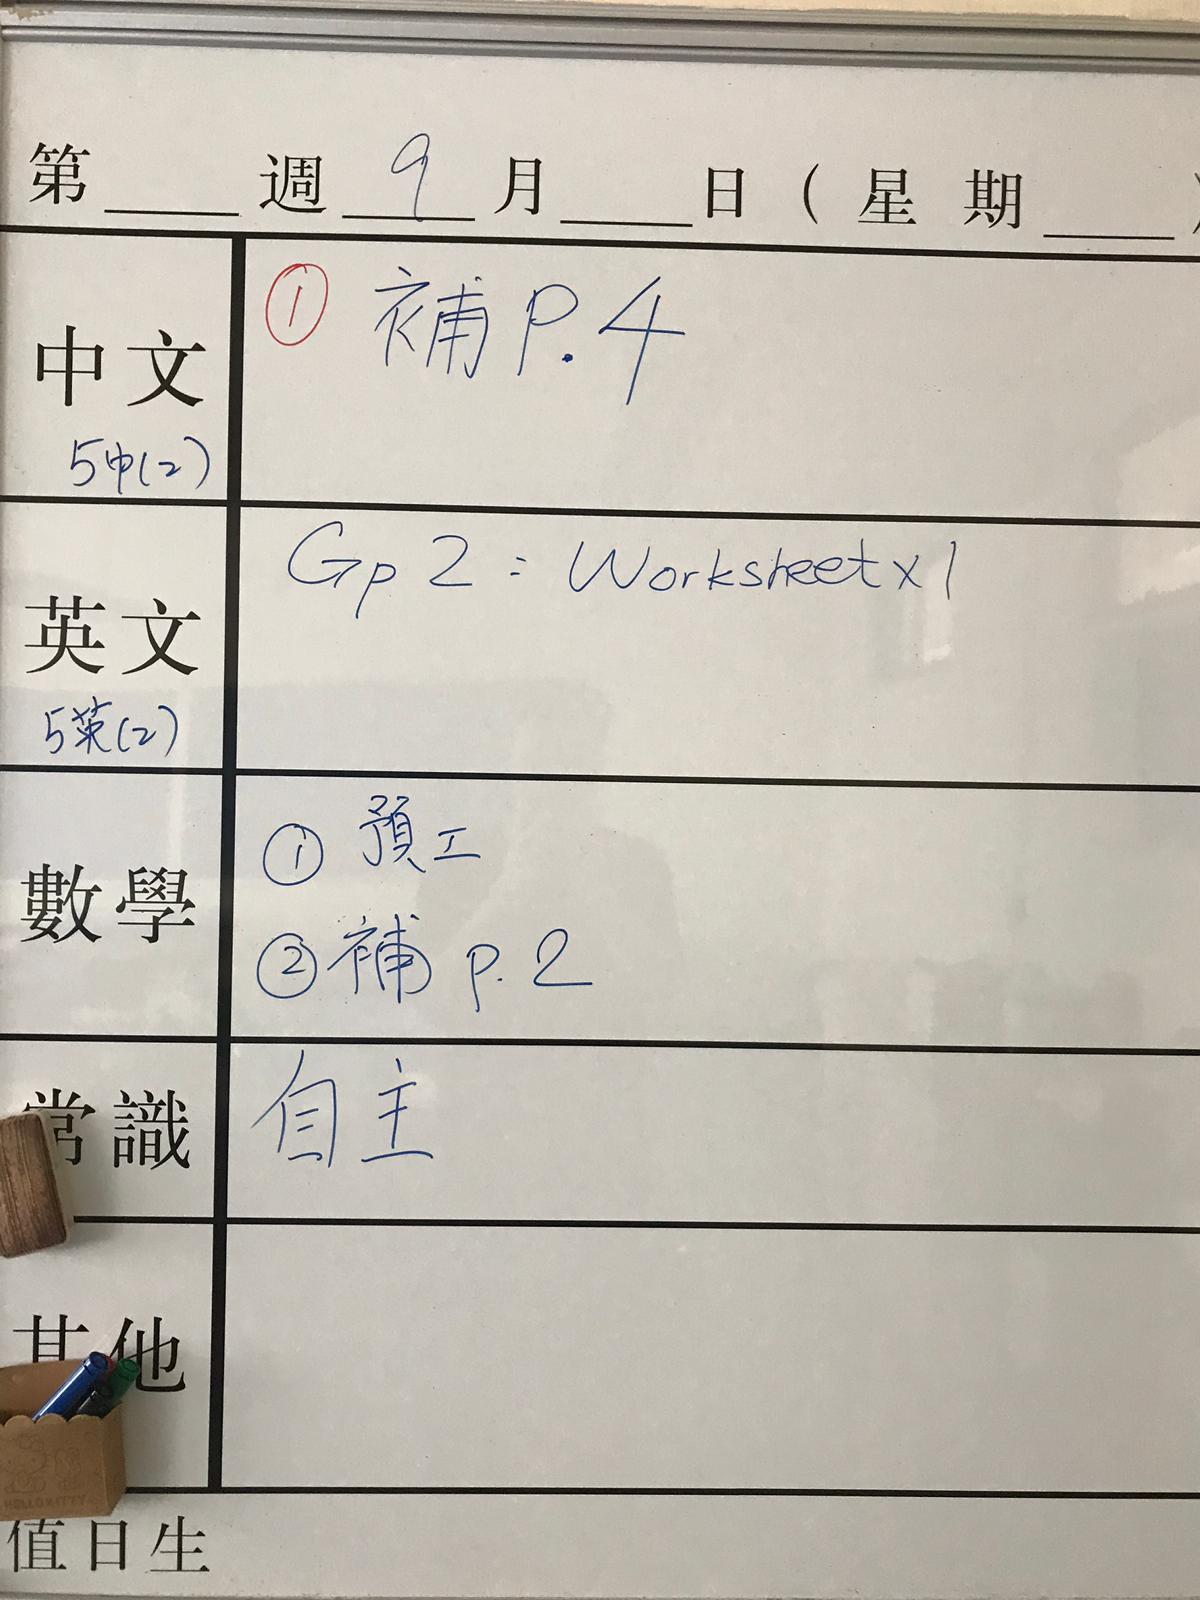 第____週 9 月____日(星期____)
中文
5中(2)
① 補 P.4
英文
5英(2)
Gp 2 : Worksheet x 1
數學
① 預工
② 補 p.2
常識
自主
其他
HELLO KITTY
值日生